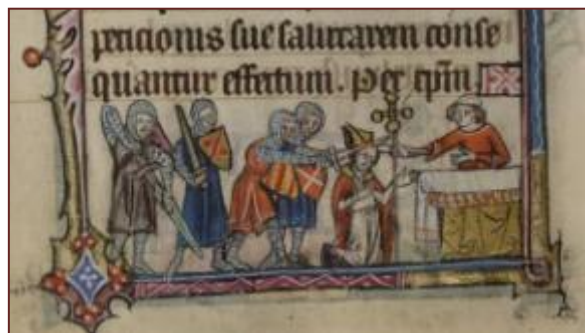 peticionis sue salutarem conse
quantur effectum. Per xpm.